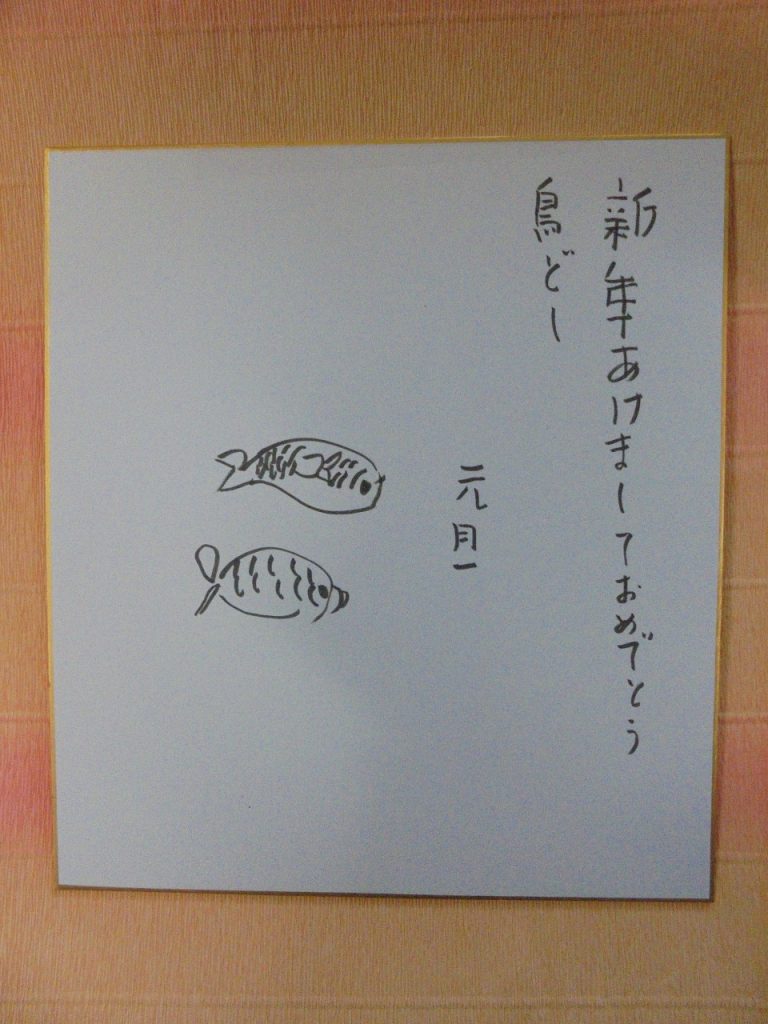 新年あけましておめでとう
鳥どし
元旦